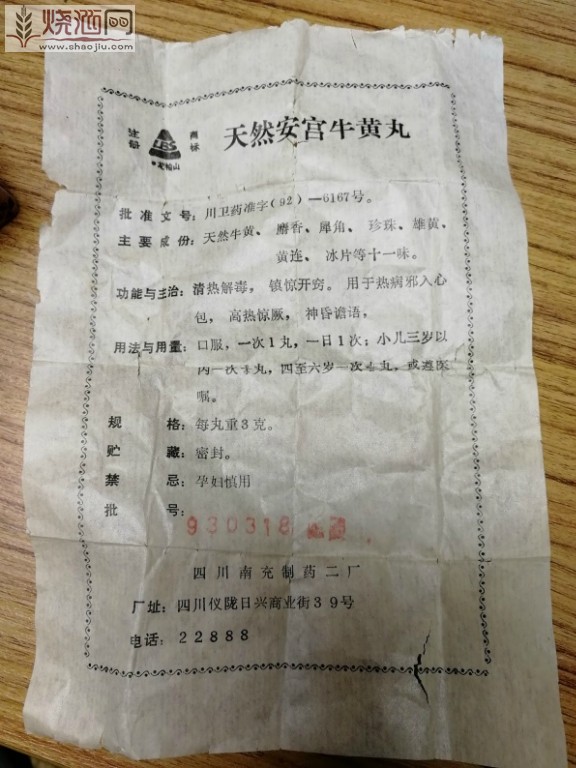 烧酒网
www.shaojiu.com
注册 商标
LBS
天然安宫牛黄丸
批准文号：川卫药准字(92)—6167号。
主要成份：天然牛黄、麝香、犀角、珍珠、雄黄、
黄连、冰片等十一味。
功能与主治：清热解毒，镇惊开窍。用于热病邪入心
包，高热惊厥，神昏谵语。
用法与用量：口服，一次1丸，一日1次；小儿三岁以
内一次 丸，四至六岁一次 丸，或遵医
嘱。
规格：每丸重3克。
贮藏：密封。
禁忌：孕妇慎用
批号：930318
四川南充制药二厂
厂址：四川仪陇日兴商业街39号
电话：22888